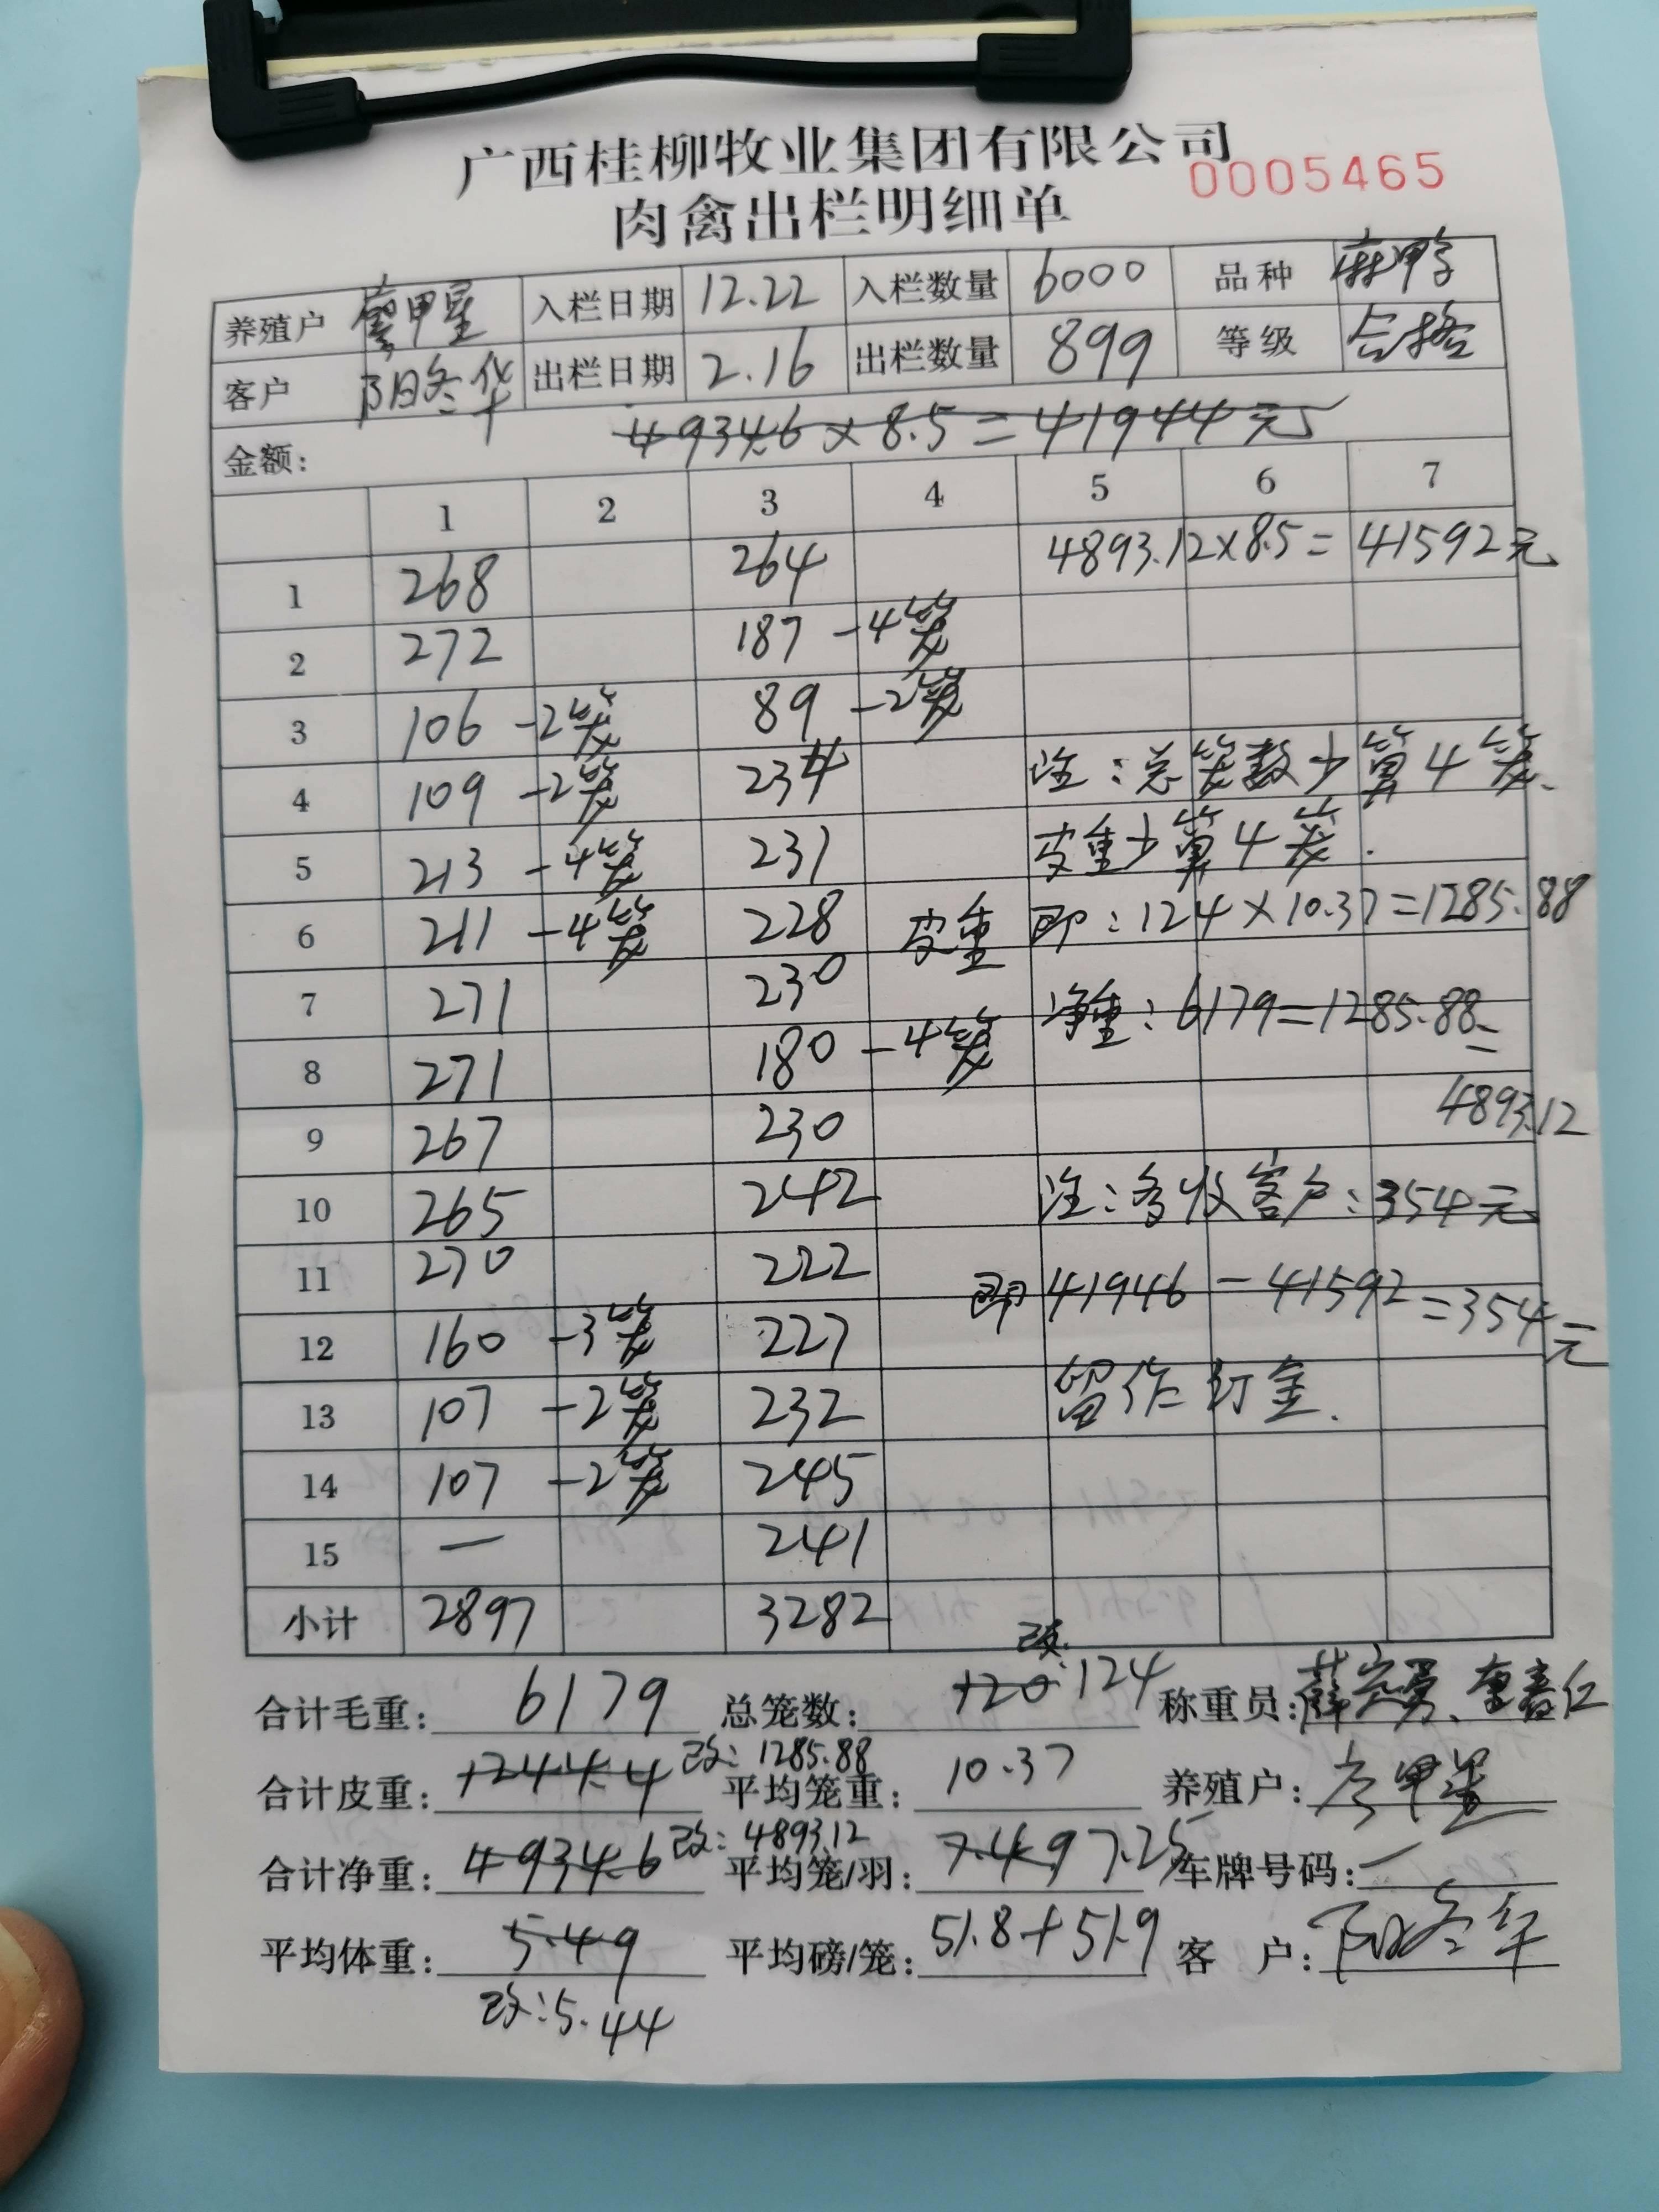 广西桂柳牧业集团有限公司
肉禽出栏明细单 0005465
养殖户 廖甲星 入栏日期 12.22 入栏数量 6000 品种 麻鸭
客户 阳冬华 出栏日期 2.16 出栏数量 899 等级 合格
金额: 4934.6×8.5=41944元
1 2 3 4 5 6 7
1 268 264 4893.12×8.5=41592元
2 272 187 -4笼
3 106 -2笼 89 -2笼
4 109 -2笼 234 注:总笼数少算4笼、
5 213 -4笼 231 皮重少算4笼.
6 211 -4笼 228 皮重 即:124×10.37=1285.88
7 271 230 净重:6179=1285.88=
8 271 180 -4笼
9 267 230 4893.12
10 265 242 注:多收客户:354元
11 270 222 即41946-41592=354元
12 160 -3笼 227
13 107 -2笼 232 留作订金.
14 107 -2笼 245
15 — 241
小计 2897 3282
合计毛重: 6179 总笼数: 120 改:124 称重员:
合计皮重: 1244.4 改:1285.88 平均笼重: 10.37 养殖户: 廖甲星
合计净重: 4934.6 改:4893.12 平均笼/羽: 7.49 7.25 车牌号码: —
平均体重: 5.49 平均磅/笼: 51.8+51.9 客 户: 阳冬华
改:5.44